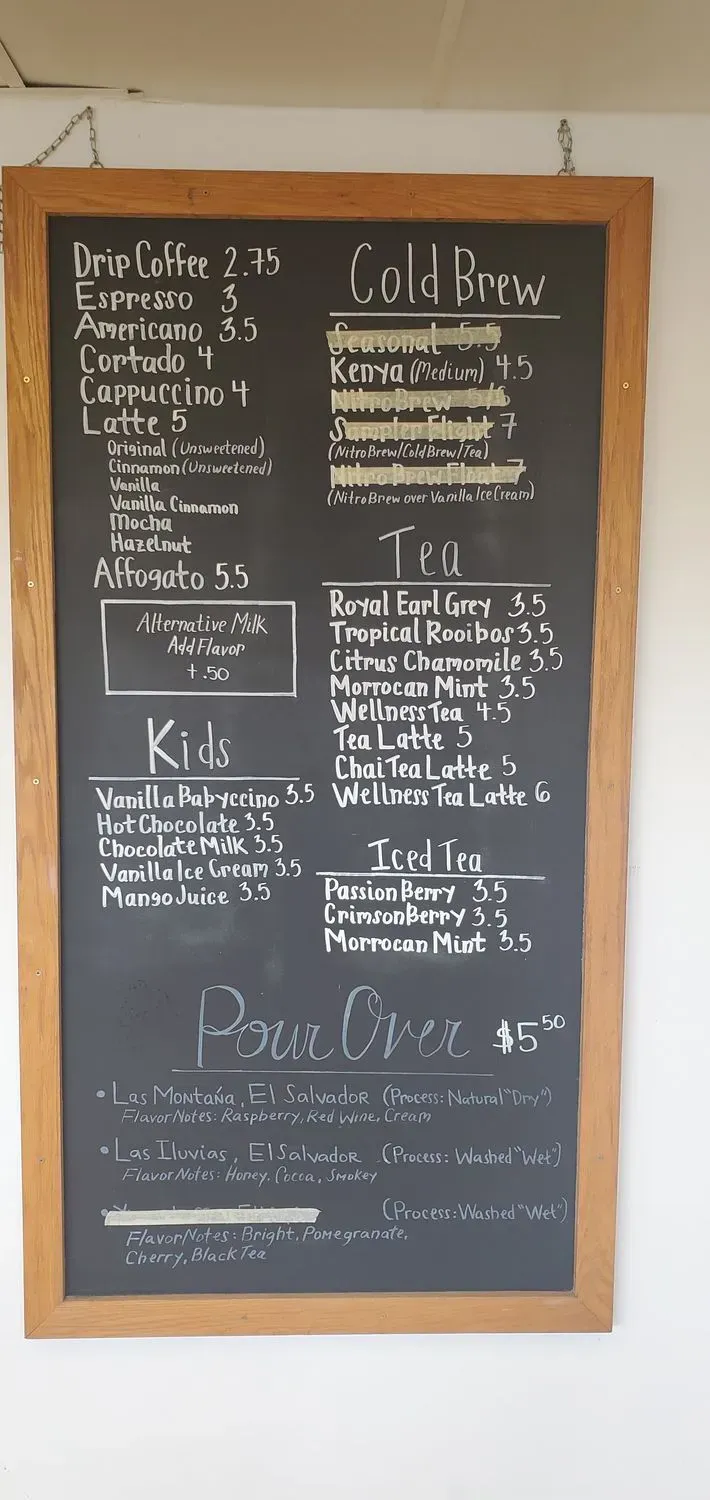 Drip Coffee 2.75
Espresso 3
Americano 3.5
Cortado 4
Cappuccino 4
Latte 5
Original (Unsweetened)
Cinnamon (Unsweetened)
Vanilla
Vanilla Cinnamon
Mocha
Hazelnut
Affogato 5.5
Alternative Milk
Add Flavor
+.50
Kids
Vanilla Babyccino 3.5
Hot Chocolate 3.5
Chocolate Milk 3.5
Vanilla Ice Cream 3.5
Mango Juice 3.5
Cold Brew
Seasonal 5.5
Kenya (Medium) 4.5
NitroBrew 5/6
Sampler Flight 7
(NitroBrew/ColdBrew/Tea)
NitroBrew Float 7
(NitroBrew over Vanilla Ice Cream)
Tea
Royal Earl Grey 3.5
Tropical Rooibos 3.5
Citrus Chamomile 3.5
Morrocan Mint 3.5
Wellness Tea 4.5
Tea Latte 5
Chai Tea Latte 5
Wellness Tea Latte 6
Iced Tea
Passion Berry 3.5
Crimson Berry 3.5
Morrocan Mint 3.5
Pour Over $5 50
• Las Montaña, El Salvador (Process: Natural "Dry")
Flavor Notes: Raspberry, Red Wine, Cream
• Las Iluvias, El Salvador (Process: Washed "Wet")
Flavor Notes: Honey, Cocoa, Smokey
• (Process: Washed "Wet")
Flavor Notes: Bright, Pomegranate,
Cherry, Black Tea